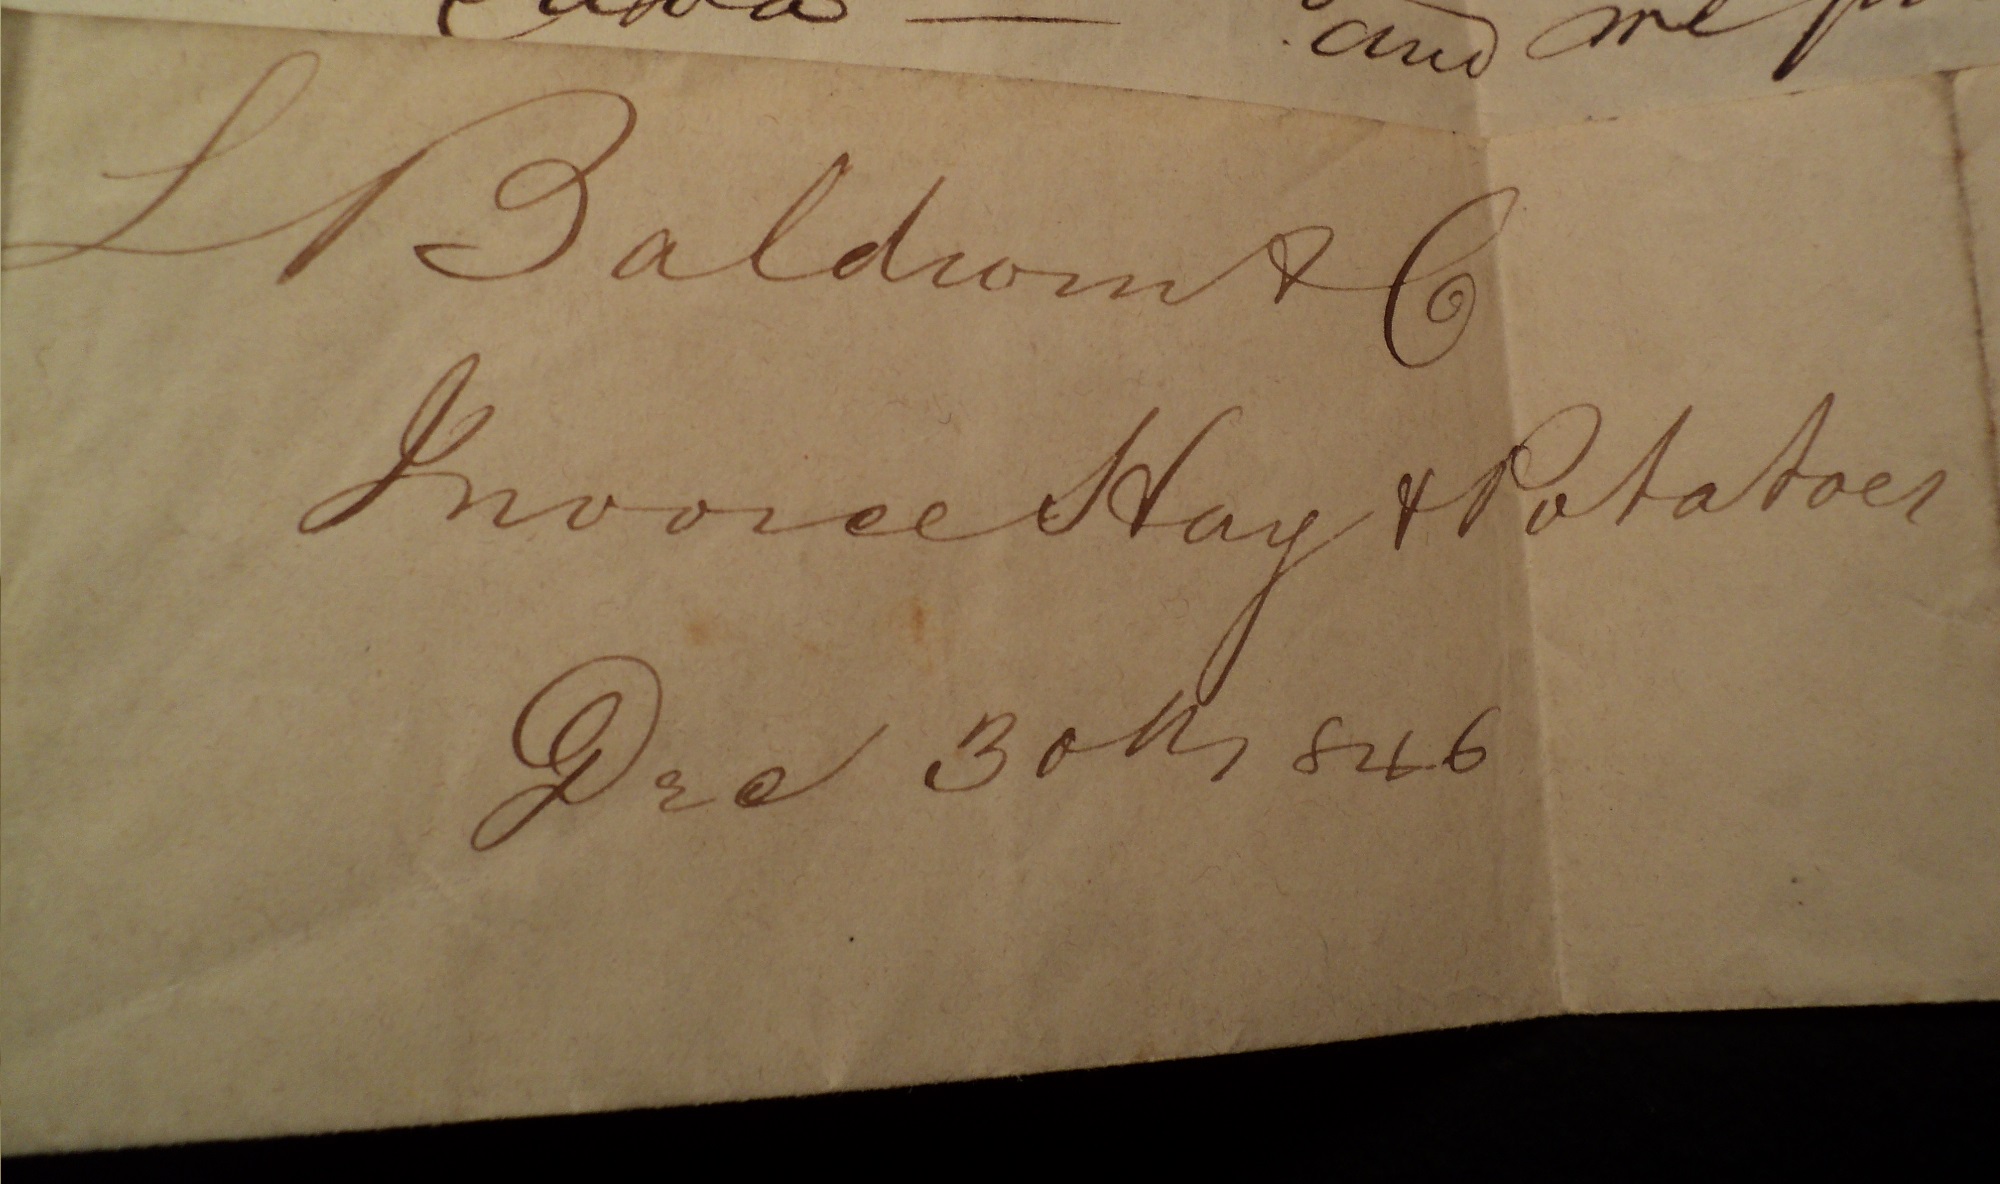 and me
L Baldwin & Co
Invoice Hay & Potatoes
Dec 30th 1846